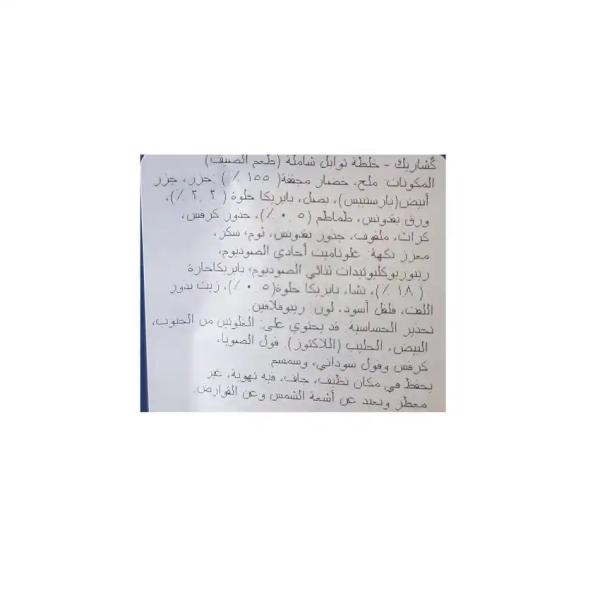 كشاريك - خلطة توابل شاملة (طعم الصيف)
المكونات: ملح، خضار مجففة( ١٥٥ ٪ ) :جزر، جزر
أبيض(بارسنيبس)، بصل، بابريكا حلوة ( ٢ . ٢ ٪)،
ورق بقدونس، طماطم (٥ . ٠ ٪)، جذور كرفس،
كراث، ملفوف، جذور بقدونس، ثوم؛ سكر،
معزز نكهة: غلوتاميت أحادي الصوديوم،
ريبوريوكليوتيدات ثنائي الصوديوم؛ بابريكاحارة
( ١٨ ٪)، نشا، بابريكا حلوة(٥ . ٠ ٪)، زيت بذور
اللفت، فلفل أسود، لون: ريبوفلافين.
تحذير الحساسية: قد يحتوي على: الغلوتين من الحبوب،
البيض، الحليب (اللاكتوز)، فول الصويا،
كرفس وفول سوداني، وسمسم.
يحفظ في مكان نظيف، جاف، فيه تهوية، غير
معطر وبعيد عن أشعة الشمس وعن القوارض.